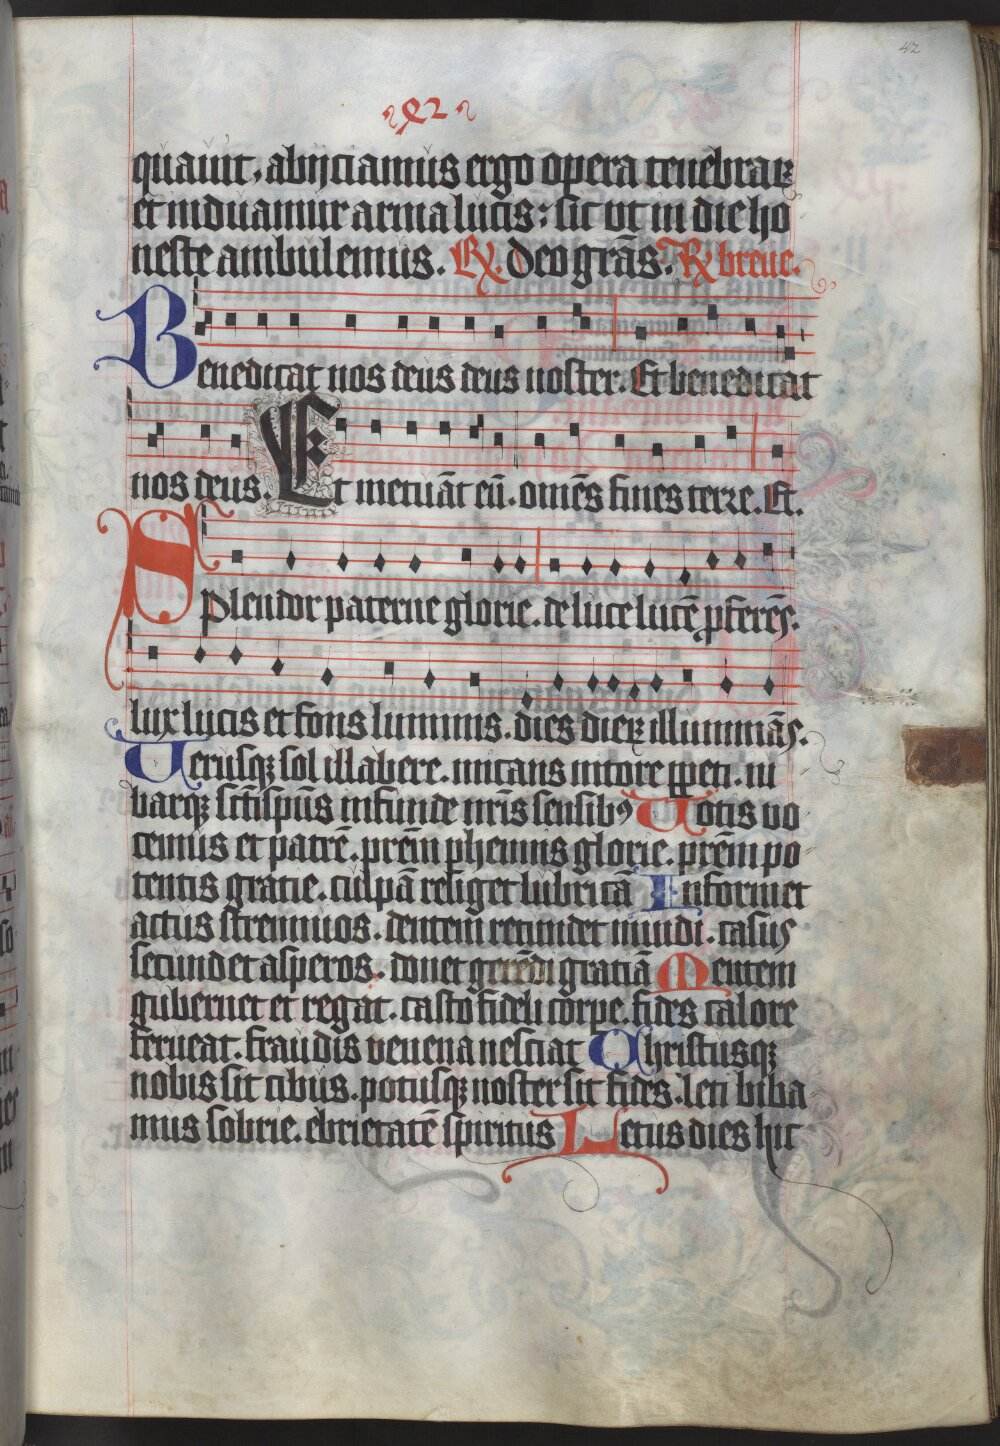 42
xl2
quauit, abijciamus ergo opera tenebraꝝ
et induamur arma lucis: sic vt in die ho
neste ambulemus. ℟. Deo grãs. ℟ breue.
Benedicat nos deus deus noster. Et benedicat
nos deus. Et metuãt eũ. omẽs fines terre. Et.
Splendor paterne glorie. de luce lucẽ ꝓferẽs.
lux lucis et fons luminis. dies dieꝝ illuminãs.
Uerusqꝫ sol illabere. micans nitore ꝑpeti. iu
barqꝫ sc̃i sp̃us infunde nr̃is sensibꝰ Uotis vo
cemus et patrẽ. pr̃em ꝑhennis glorie. pr̃em po
tentis gratie. culpã religet lubricã Informet
actus strennuos. dentem retundet inuidi. casus
secundet asperos. donet gerẽdi gratiã Mentem
gubernet et regat. casto fideli corpe. fides calore
ferueat. fraudis venena nesciat Christusqꝫ
nobis sit cibus. potusqꝫ noster sit fides. leti biba
mus sobrie. ebrietatẽ spiritus Letus dies hic